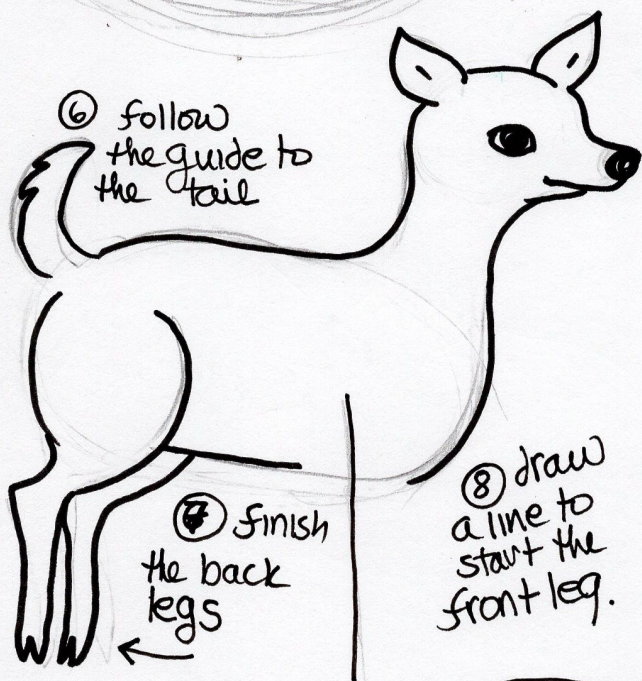 ⑥ follow
the guide to
the tail
⑦ finish
the back
legs
⑧ draw
a line to
start the
front leg.